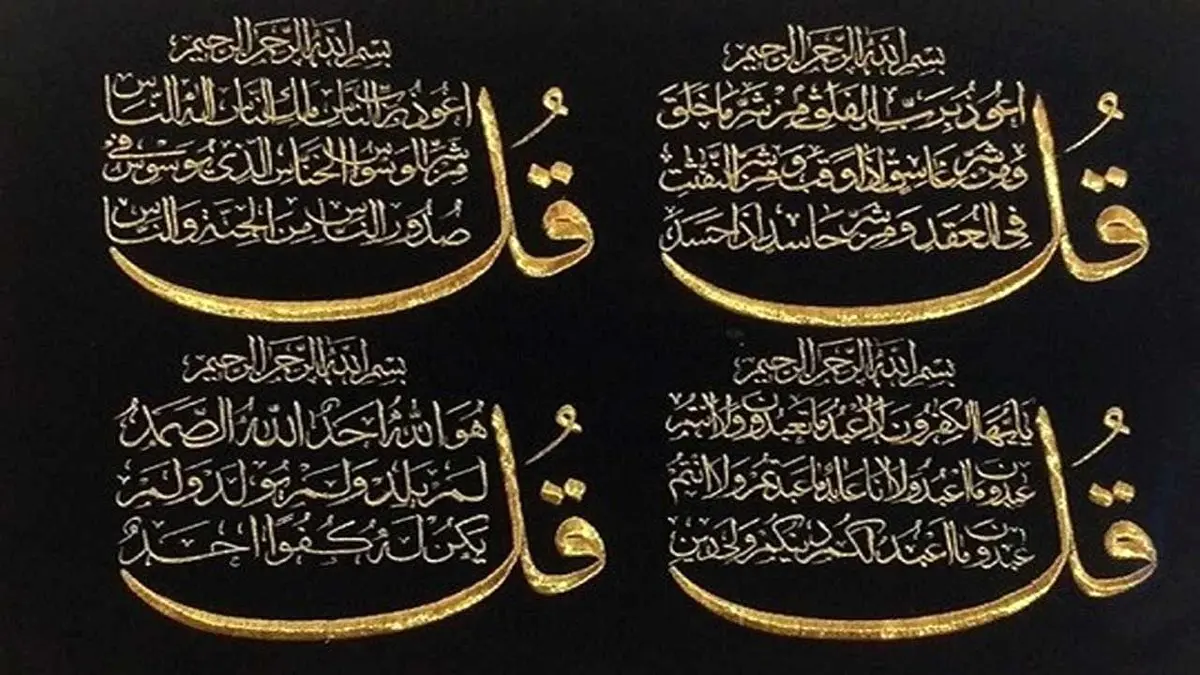 بسم الله الرحمن الرحيم
قُل اعوذ برب الفلق من شر ما خلق
ومن شر غاسق اذا وقب ومن شر النفثت
في العقد ومن شر حاسد اذا حسد
بسم الله الرحمن الرحيم
قُل اعوذ برب الناس ملك الناس اله الناس
من شر الوسواس الخناس الذي يوسوس في
صدور الناس من الجنة والناس
بسم الله الرحمن الرحيم
قُل يايها الكفرون لا اعبد ما تعبدون ولا انتم
عبدون ما اعبد ولا انا عابد ما عبدتم ولا انتم
عبدون ما اعبد لكم دينكم ولي دين
بسم الله الرحمن الرحيم
قُل هو الله احد الله الصمد
لم يلد ولم يولد ولم
يكن له كفوا احد